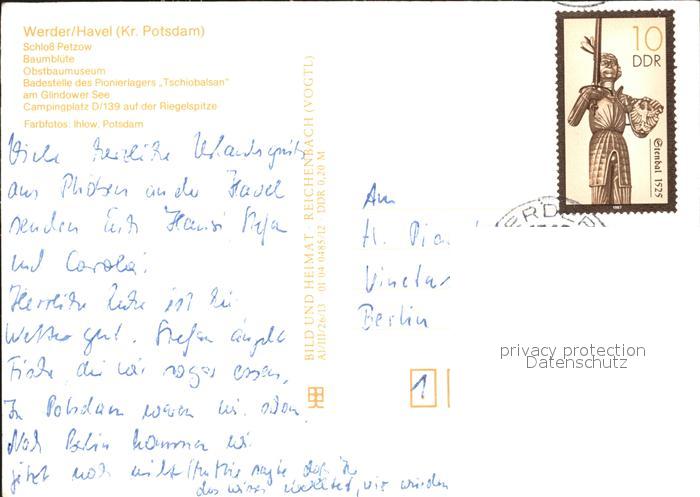 Werder/Havel (Kr. Potsdam)
Schloß Petzow
Baumblüte
Obstbaumuseum
Badestelle des Pionierlagers „Tschiobalsan"
am Glindower See
Campingplatz D/139 auf der Riegelspitze
Farbfotos: Ihlow, Potsdam
Viele herzliche Urlaubsgrüße
aus Phöben an der Havel
senden Euch Hansi Stefan
und Carola.
Herrliche Ruhe ist hier
Wetter gut. Stefan angelt
Fische, die wir sogar essen.
In Potsdam waren wir schon.
Nach Berlin kommen wir
jetzt noch nicht
das wisst, wir würden
BILD UND HEIMAT REICHENBACH (VOGTL)
A1/III/26/13 01 04 0485/12 DDR 0,20 M
10
DDR
Stendal 1525
1987
WERD
An
H.
Berlin
1
privacy protection
Datenschutz